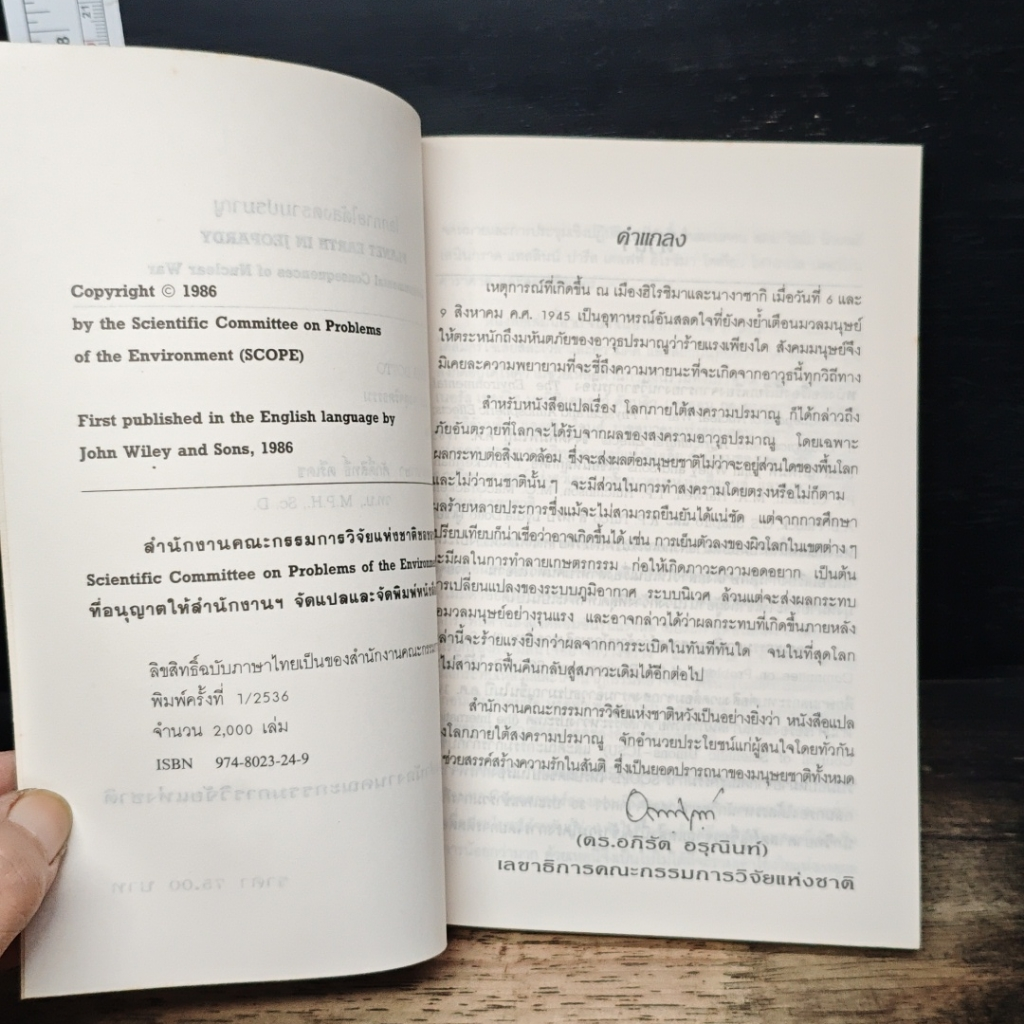 Copyright © 1986
by the Scientific Committee on Problems
of the Environment (SCOPE)
First published in the English language by
John Wiley and Sons, 1986
สำนักงานคณะกรรมการวิจัยแห่งชาติ
Scientific Committee on Problems of the
ที่อนุญาตให้สำนักงานฯ จัดแปลและจัดพิมพ์
ลิขสิทธิ์ฉบับภาษาไทยเป็นของสำนักงาน
พิมพ์ครั้งที่ 1/2536
จำนวน 2,000 เล่ม
ISBN 974-8023-24-9
คำแถลง
เหตุการณ์ที่เกิดขึ้น ณ เมืองฮิโรชิมาและนางาซากิ เมื่อวันที่ 6 และ
9 สิงหาคม ค.ศ. 1945 เป็นอุทาหรณ์อันสลดใจที่ยังคงย้ำเตือนมวลมนุษย์
ให้ตระหนักถึงมหันตภัยของอาวุธปรมาณูว่าร้ายแรงเพียงใด สังคมมนุษย์จึง
มิเคยละความพยายามที่จะชี้ถึงความหายนะที่จะเกิดจากอาวุธนี้ทุกวิถีทาง
สำหรับหนังสือแปลเรื่อง โลกภายใต้สงครามปรมาณู ก็ได้กล่าวถึง
ภัยอันตรายที่โลกจะได้รับจากผลของสงครามอาวุธปรมาณู โดยเฉพาะ
ผลกระทบต่อสิ่งแวดล้อม ซึ่งจะส่งผลต่อมนุษยชาติไม่ว่าจะอยู่ส่วนใดของพื้นโลก
และไม่ว่าชนชาตินั้น ๆ จะมีส่วนในการทำสงครามโดยตรงหรือไม่ก็ตาม
ผลร้ายหลายประการซึ่งแม้จะไม่สามารถยืนยันได้แน่ชัด แต่จากการศึกษา
เปรียบเทียบก็น่าเชื่อว่าอาจเกิดขึ้นได้ เช่น การเย็นตัวลงของผิวโลกในเขตต่าง ๆ
จะมีผลในการทำลายเกษตรกรรม ก่อให้เกิดภาวะความอดอยาก เป็นต้น
การเปลี่ยนแปลงของระบบภูมิอากาศ ระบบนิเวศ ล้วนแต่จะส่งผลกระทบ
มวลมนุษย์อย่างรุนแรง และอาจกล่าวได้ว่าผลกระทบที่เกิดขึ้นภายหลัง
นี้จะร้ายแรงยิ่งกว่าผลจากการระเบิดในทันทีทันใด จนในที่สุดโลก
ไม่สามารถฟื้นคืนกลับสู่สภาวะเดิมได้อีกต่อไป
สำนักงานคณะกรรมการวิจัยแห่งชาติหวังเป็นอย่างยิ่งว่า หนังสือแปล
โลกภายใต้สงครามปรมาณู จักอำนวยประโยชน์แก่ผู้สนใจโดยทั่วกัน
ช่วยสรรค์สร้างความรักในสันติ ซึ่งเป็นยอดปรารถนาของมนุษยชาติทั้งหมด
(ดร.อภิรัต อรุณินท์)
เลขาธิการคณะกรรมการวิจัยแห่งชาติ